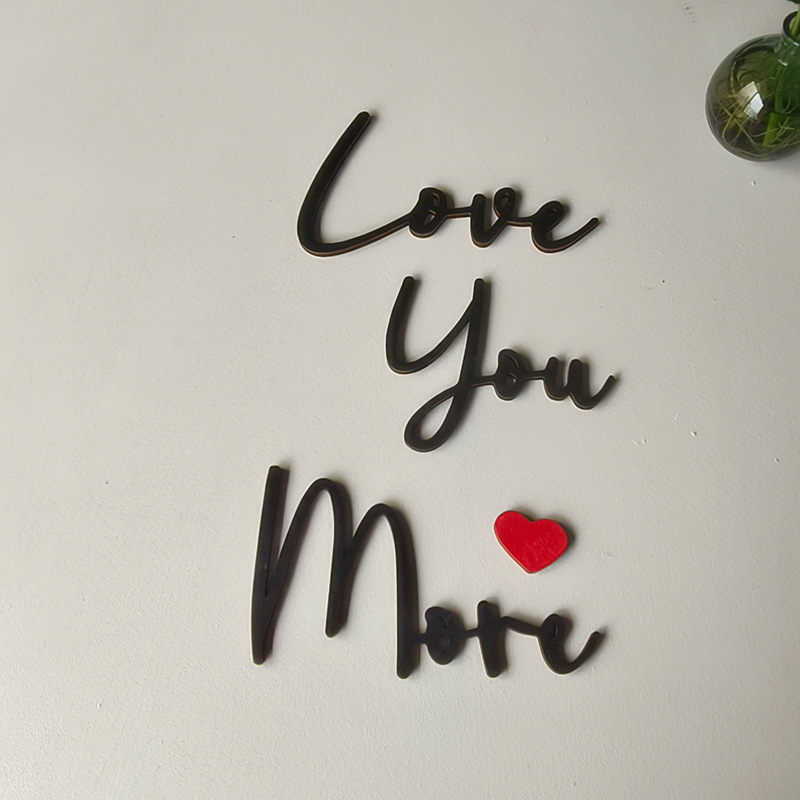 Love
You
More